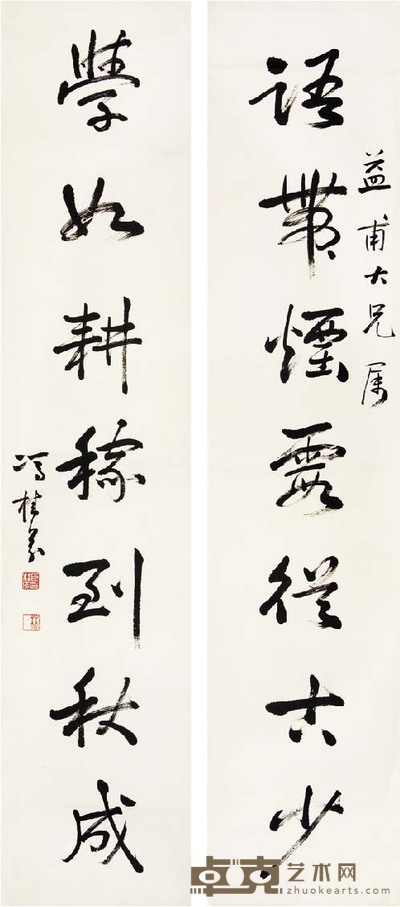 語帶煙霞從古少
益甫大兄屬
學如耕稼到秋成
馮桂芬
卓克艺术网
zhuokearts.com